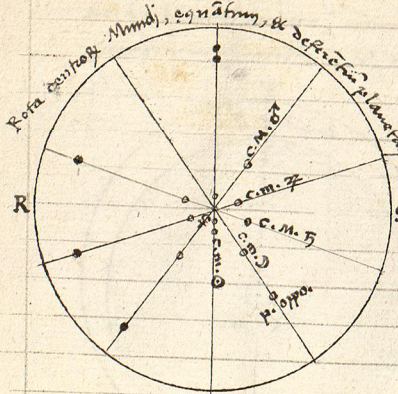 Rota centroꝝ Mundi, equãtium, & deferẽtiũ planeta
R
C. M. ♂
C. M. ♃
C. M. ♄
C. m. ☽
C. m. ☉
p. oppo.